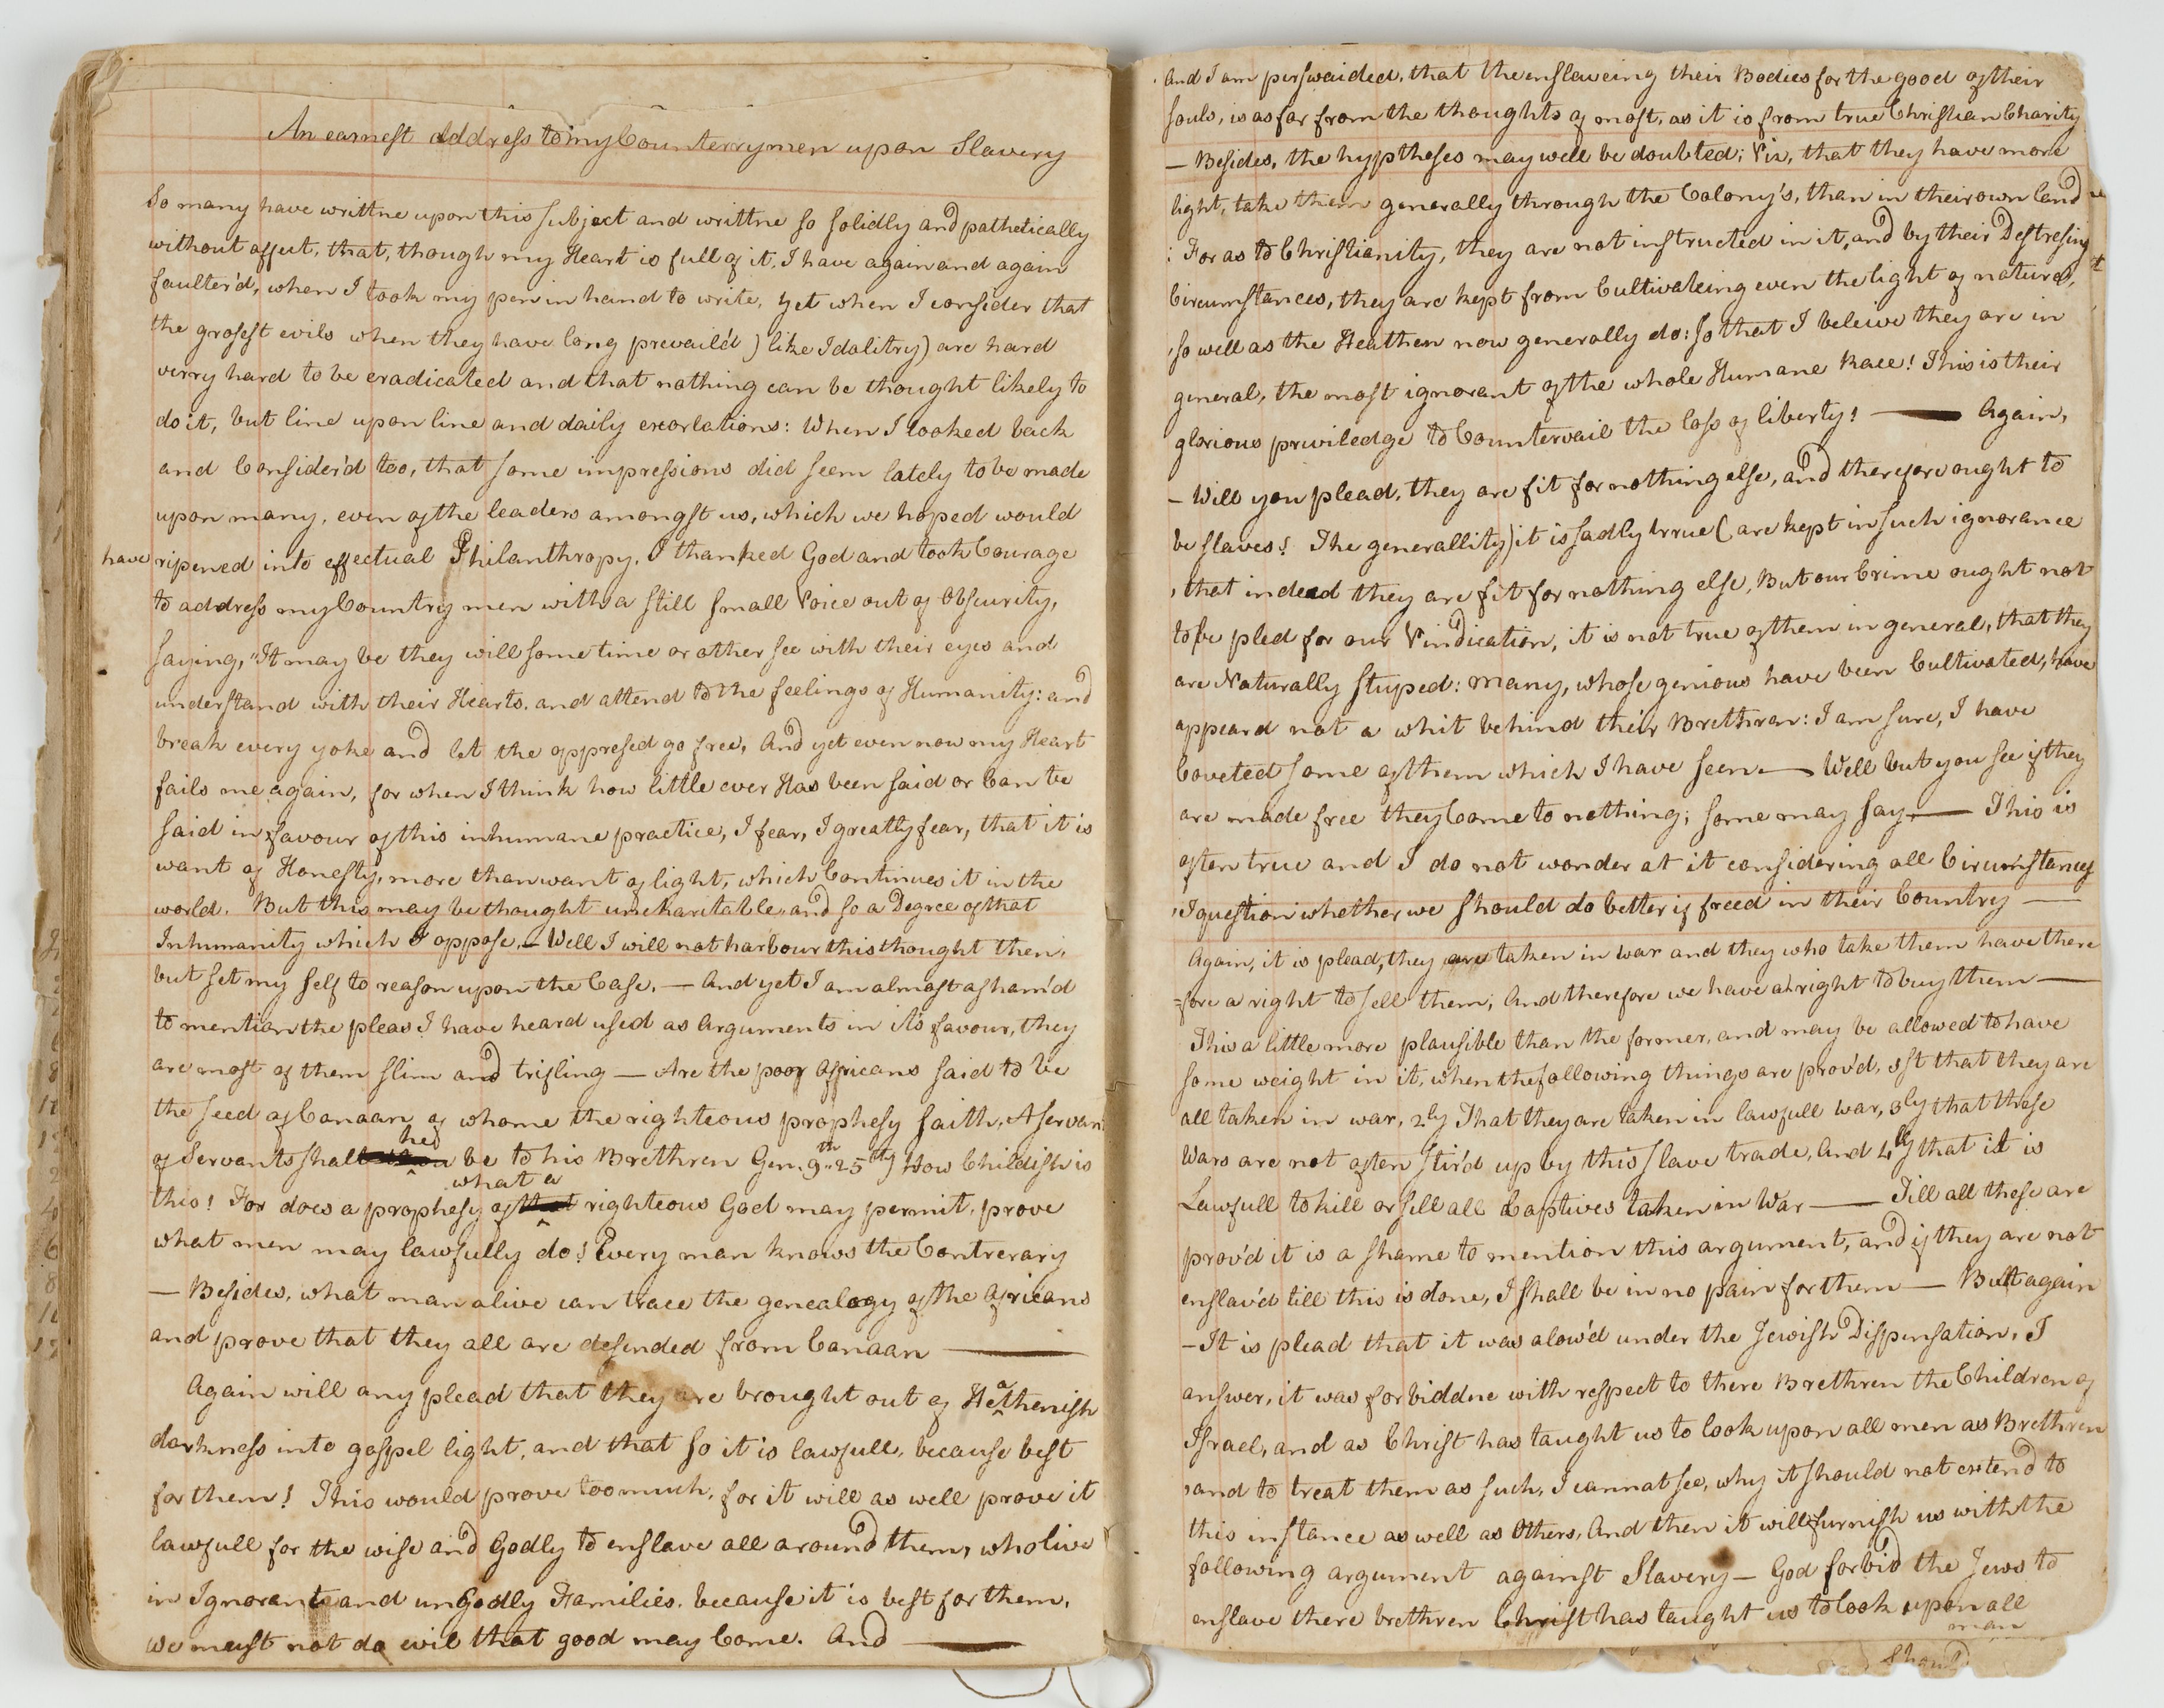 An earnest address to my Counterrymen upon Slavery
So many have writtne upon this subject and writtne so solidly and pathetically
without affect, that, though my Heart is full of it, I have again and again
faulter'd, when I took my pen in hand to write, yet when I consider that
the grosest evils when they have long prevail'd ) like Idolitry) are hard
verry hard to be eradicated and that nothing can be thought likely to
do it, but line upon line and daily exortations: When I looked back
and Consider'd too, that some impressions did seem lately to be made
upon many, even of the leaders amongst us, which we hoped would
have ripened into effectual Philanthropy, I thanked God and took Courage
to address my Country men with a still small Voice out of Obscurity,
saying, "It may be they will some time or other see with their eyes and
understand with their Hearts. and attend to the feelings of Humanity: and
break every yoke and let the oppresed go free, And yet even now my Heart
fails me again, for when I think how little ever Has been said or Can be
said in favour of this inhumane practice, I fear, I greatly fear, that it is
want of Honesty, more than want of light, which Continues it in the
world. But this may be thought uncharitable, and so a Degree of that
Inhumanity which I oppose,— Well I will not harbour this thought then,
but set my self to reason upon the Case. — And yet I am almost asham'd
to mention the pleas I have heard used as arguments in its favour, they
are most of them slim and trifling — Are the poor Affricans said to be
the seed of Canaan of whome the righteous prophesy saith, A servan
he
of Servants shall be to his Brethren Gen, 9th - 25th) How Childish is
what a
this! For does a prophesy of righteous God may permit, prove
what men may lawfully do! Every man knows the Contrerary
— Besides, what man alive can trace the genealogy of the Africans
and prove that they all are desended from Canaan —
Again will any plead that they are brought out of Heathenish
darkness into gospel light, and that so it is lawfull, because best
for them! This would prove too much, for it will as well prove it
lawfull for the wise and Godly to enslave all around them, who live
in Ignorante and ungodly Families. because it is best for them,
we must not do evil that good may Come. And —
And I am perswaided, that the enslaveing their Bodies for the good of their
souls, is as far from the thoughts of most, as it is from true Christian Charity
— Besides, the hyptheses may well be doubted; Viz, that they have more
light, take them generally through the Colony's, than in their own land
: For as to Christianity, they are not instructed in it, and by their Destresing
Circumstances, they are kept from Cultivateing even the light of nature,
so well as the Heathen now generally do: so that I beleive they are in
general, the most ignorant of the whole Humane Race! This is their
glorious priviledge to Countervail the loss of liberty! — Again,
— Will you plead, they are fit for nothing else, and therefore ought to
be slaves! The generallity) it is sadly trrue ( are kept in such ignorance
, that indead they are fit for nothing else, But our Crime ought not
to be pled for our Vindication, it is not true of them in general, that they
are Naturally stuped: many, whose genious have been Cultivated, have
appeard not a whit behind their Brethren: I am sure, I have
Coveted some of them which I have seen — Well but you see if they
are made free they Come to nothing; some may say, — This is
often true and I do not wonder at it considering all Circumstances
, I question whether we should do better if freed in their Country —
Again, it is plead, they are taken in war and they who take them have there
=fore a right to sell them; And therefore we have a right to buy them —
This a little more plausible than the former, and may be allowed to have
some weight in it, when the following things are prov'd, 1st that they are
all taken in war, 2ly That they are taken in lawfull war, 3ly that these
Wars are not often stir'd up by this slave trade, And 4ly that it is
Lawfull to kill or sell all Captives taken in War — Till all these are
prov'd it is a shame to mention this argument, and if they are not
enslav'd till this is done, I shall be in no pain for them — But again
— It is plead that it was alow'd under the Jewish Dispensation, I
answer, it was forbiddne with respect to there Brethren the Children of
Israel, and as Christ has taught us to look upon all men as Brethren
, and to treat them as such, I cannat see, why it should not extend to
this instance as well as Others, And then it will furnish us with the
following argument against Slavery — God forbid the Jews to
enslave there brethren Christ has taught us to look upon all
man